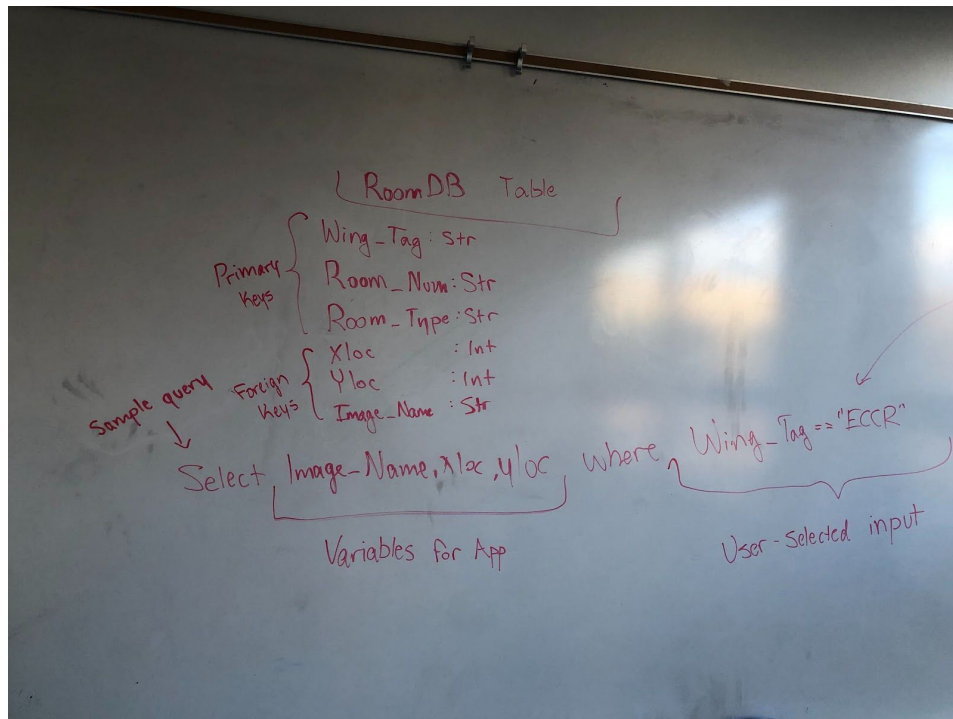 RoomDB Table
Primary
Keys
Wing_Tag: Str
Room_Num: Str
Room_Type: Str
Foreign
Keys
Xloc : Int
Yloc : Int
Image_Name : Str
Sample query
Select Image_Name, Xloc, Yloc where Wing_Tag == "ECCR"
Variables for App
User-selected input